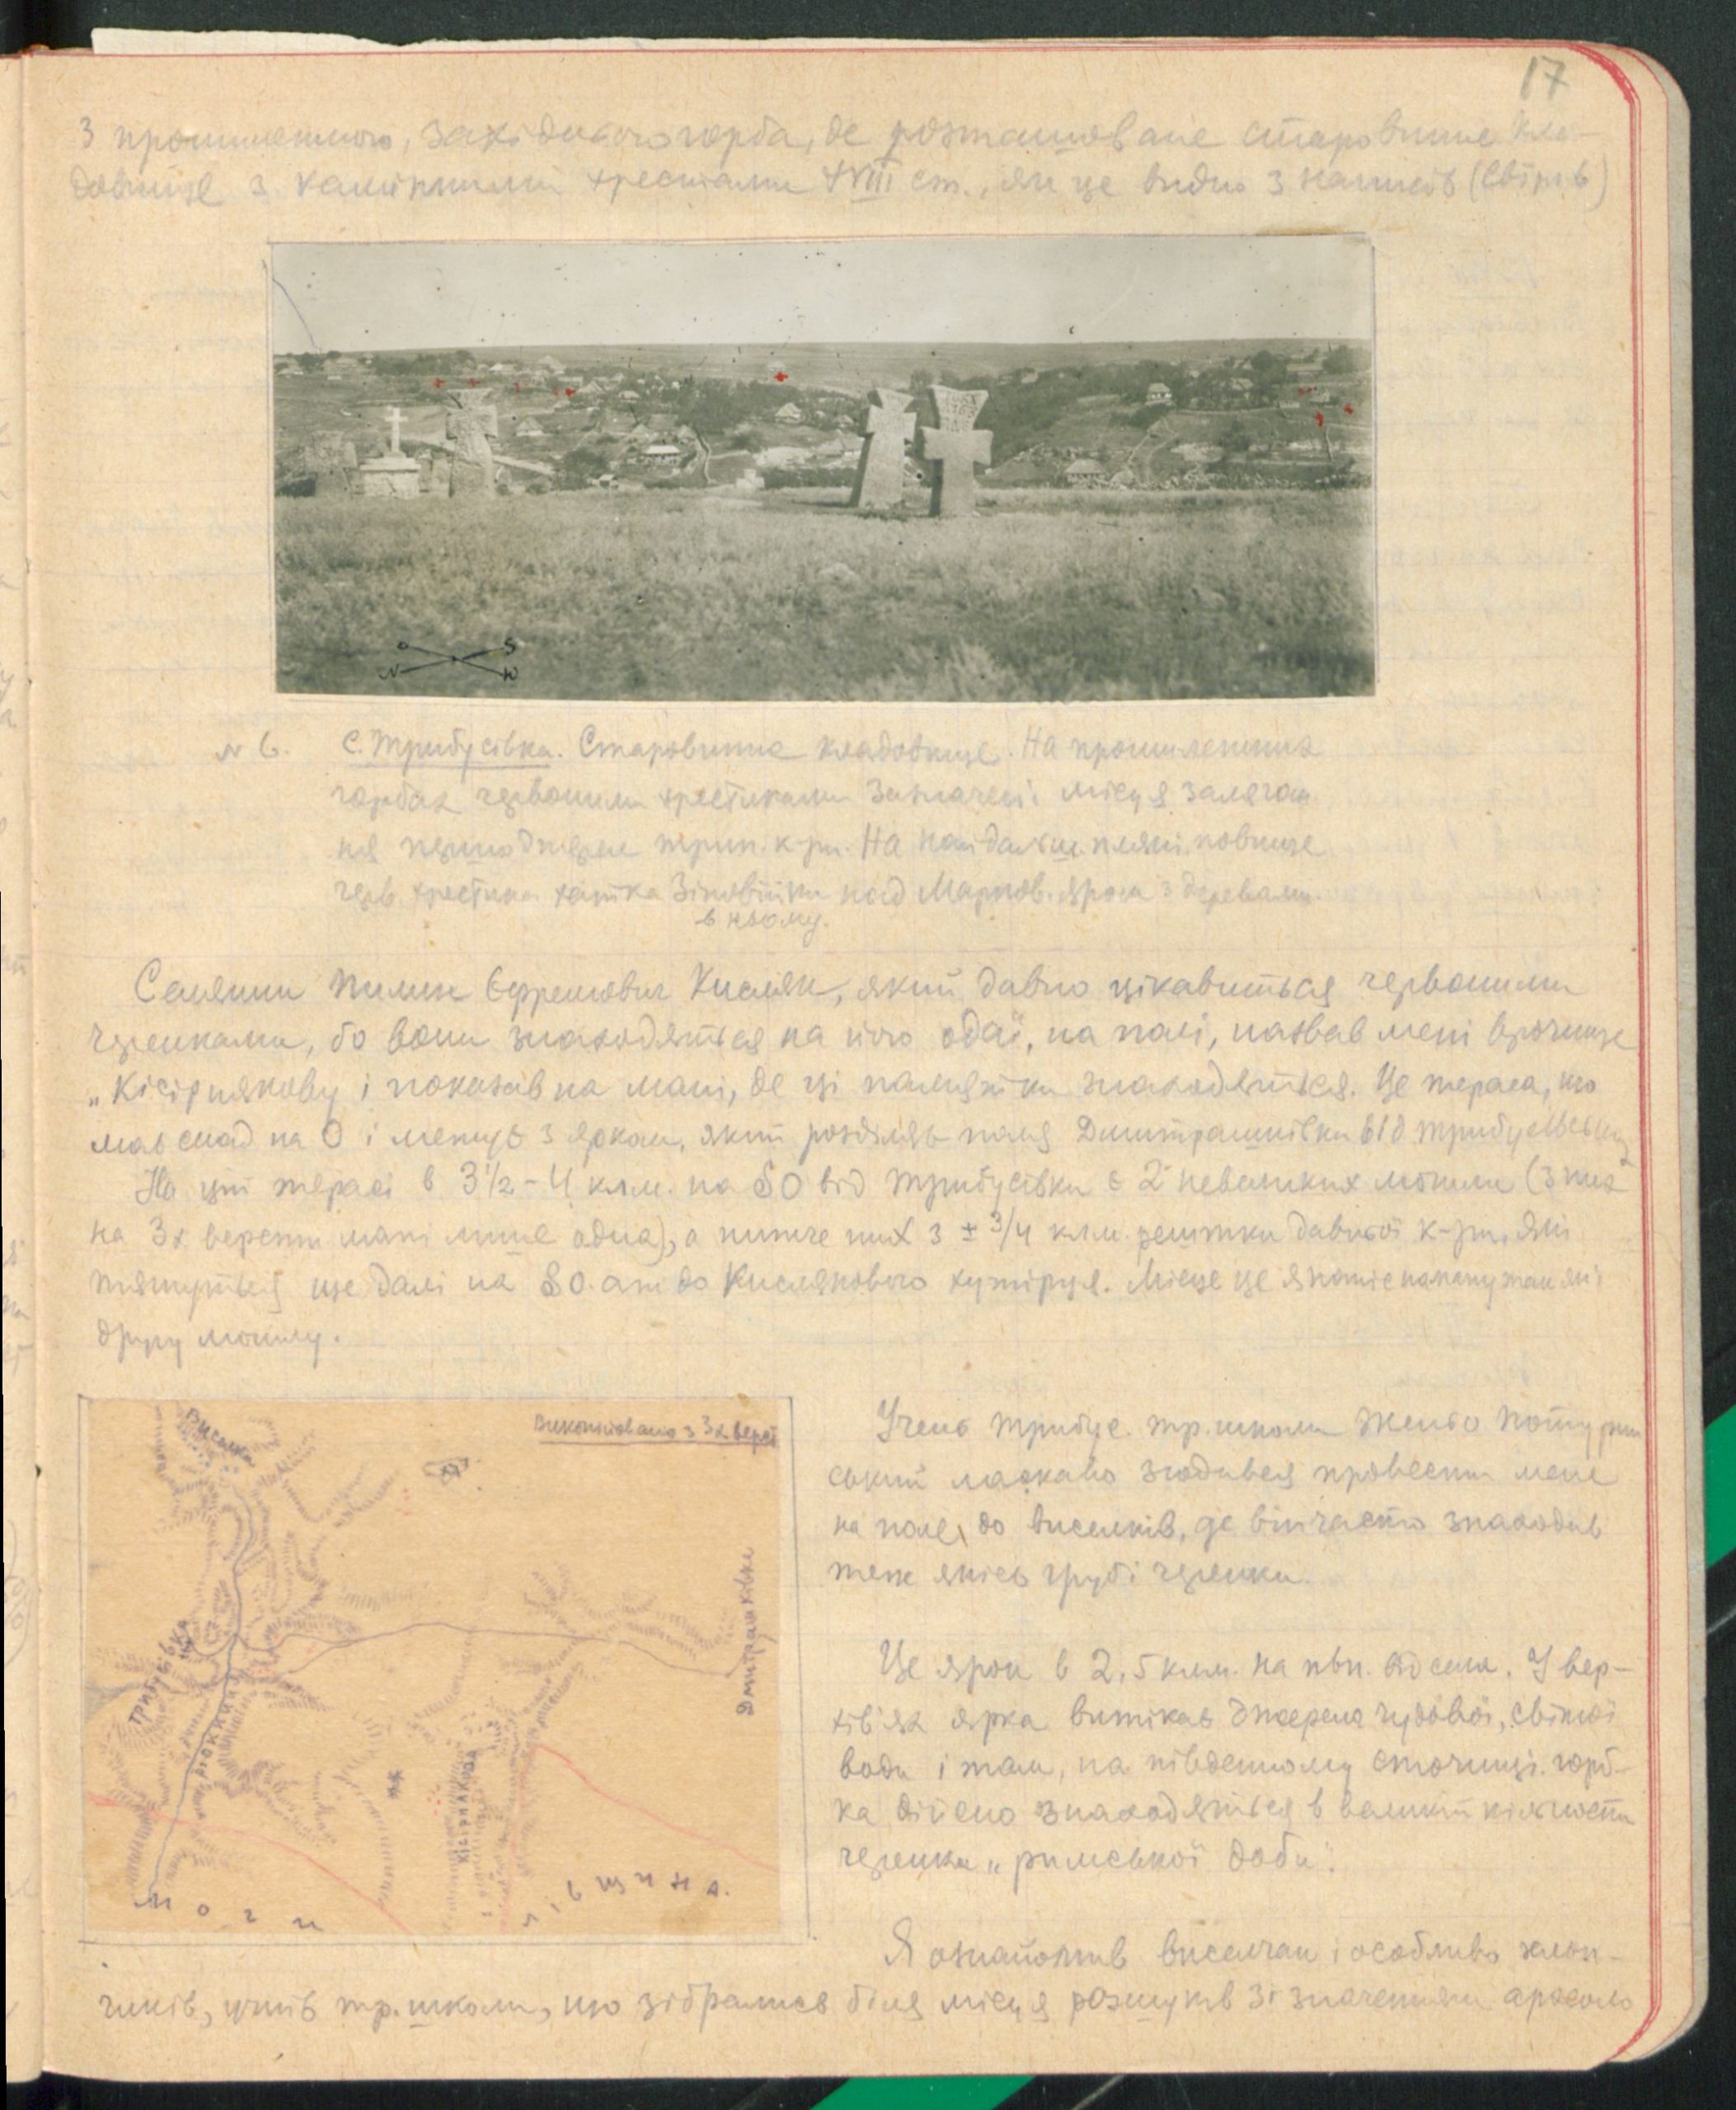 17
З протилежного, західнього горба, де розташоване старовинне кла-
довище з камінними хрестами XVIII ст., як це видно з написів (світлв)
O S
N W
N 6. С. Трибусівка. Старовинне кладовище. На протилежних
горбах червоними хрестиками зазначені місця заляган
ня череп трип. к-ри. На найдальш. пляні повище
черв. хрестика хатка Зіновійки над Марков. яром з деревами
в ньому.
Селянин Пилип Єфремович Кисляк, який давно цікавиться червоними
черепками, бо вони знаходяться на його одаї, на полі, назвав мені врочище
„Кісірнякову і показав на мапі, де ці пам'ятки знаходяться. Це тераса, що
має спад на O і межує з ярком, який розділяє поля Дмитрашківки від Трибусівських
На цій терасі в 3½-4 клм. на SO від Трибусівки є 2 невеликих могили (з них
на 3х верстн мапі лише одна), а нижче них з ± 3/4 клм. рештки давньої к-ри, які
тягнуться ще далі на SO. аж до Кислякового хутірця. Місце це я наніс на мапу так як і
другу могилу.
Висілки
Викопійовано з 3х верст
Дмитрашківка
Трибусівка
Кісірнякова
м о г и
л і в щ и н а.
Учень Трибус. тр. школи Женьо Потурин
ський ласкаво згодився провести мене
на поле, до висілків, де він часто знаходив
теж якісь грубі черепки.
Це ярок в 2,5 клм. на пвн. від села. У вер-
хів'ях ярка витікає джерело чудової, світлої
води і там, на південному сточищі горб-
ка дійсно знаходяться в великій кількости
черепки „римської доби".
Я ознайомив виселчан і особливо хлоп-
чиків, учнів тр. школи, що зібралися біля місця розшуків зі значенням археоло